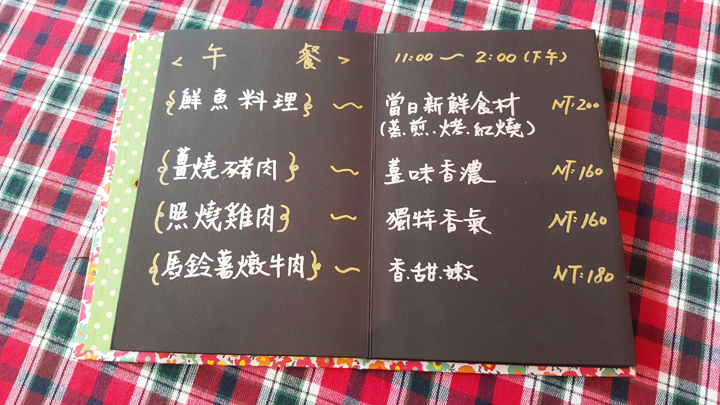 <午餐> 11:00~2:00(下午)
{鮮魚料理}~當日新鮮食材 NT:200
(蒸.煎.烤.紅燒)
{薑燒豬肉}~薑味香濃 NT:160
{照燒雞肉}~獨特香氣 NT:160
{馬鈴薯燉牛肉}~香.甜.嫩 NT:180